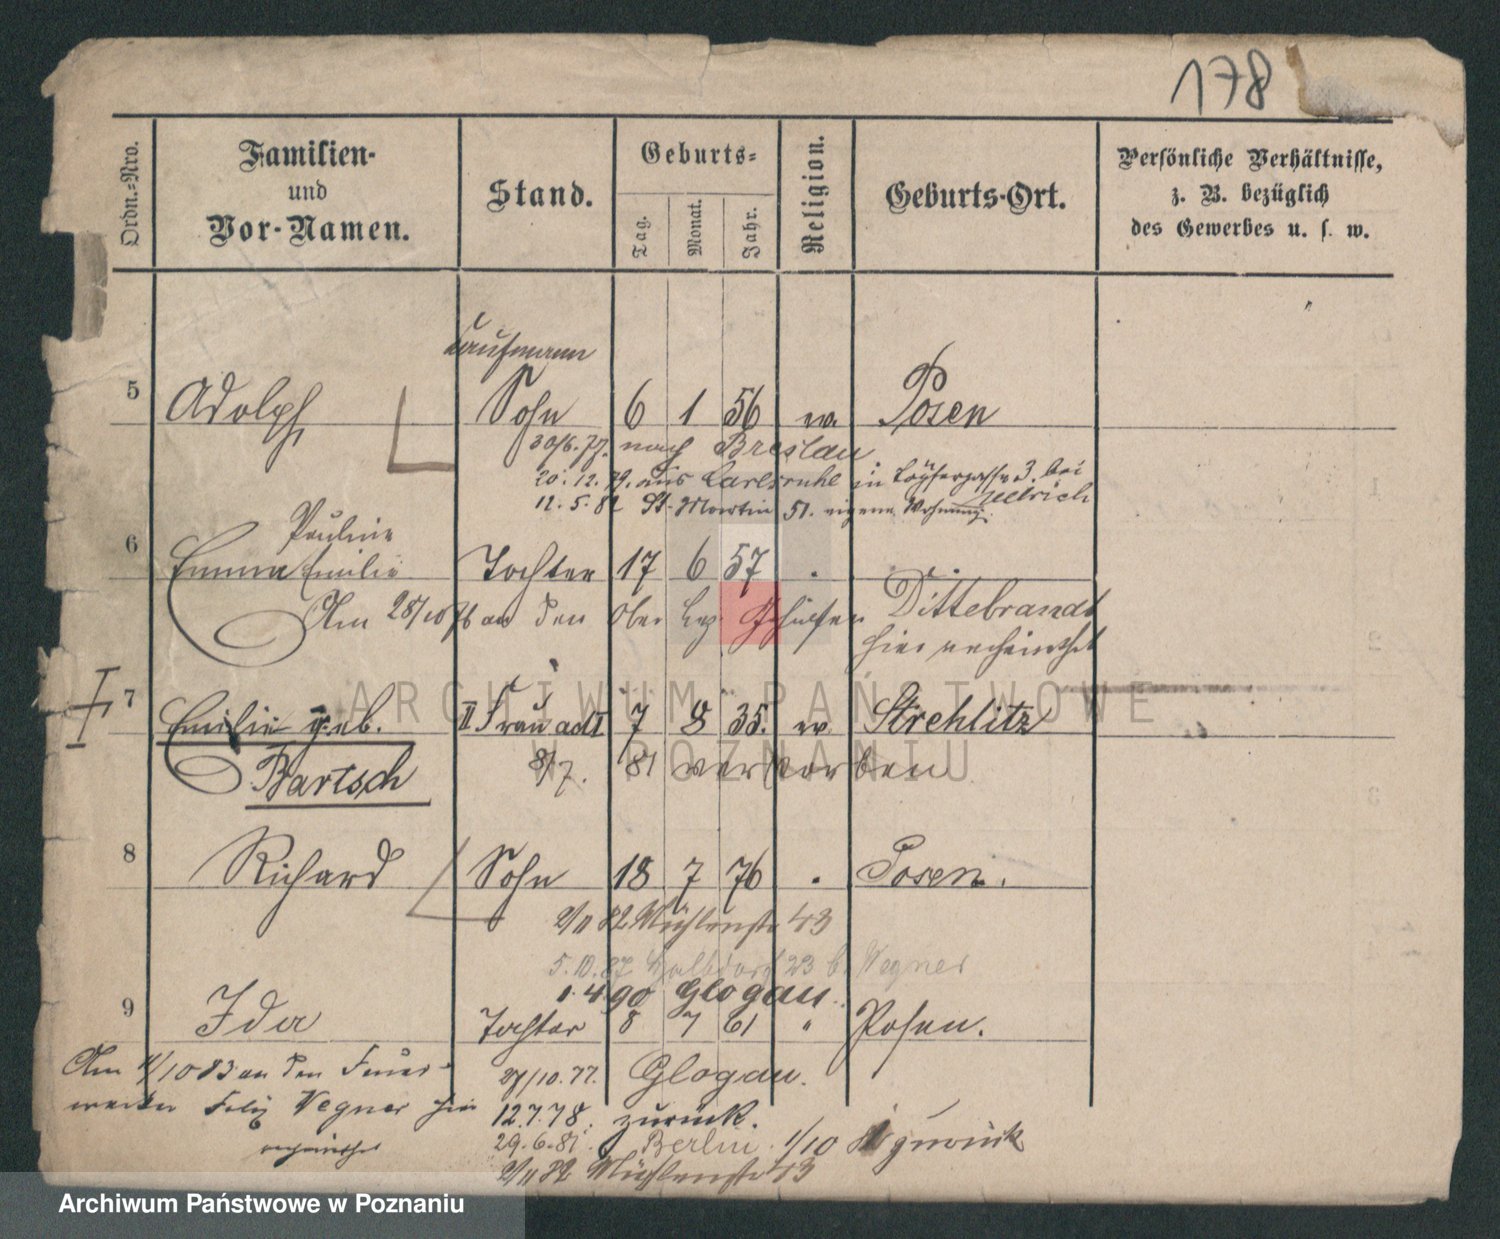 178
Ordn.-Nro.
Familien-
und
Vor-Namen.
Stand.
Geburts-
Tag.
Monat.
Jahr.
Religion.
Geburts-Ort.
Persönliche Verhältnisse,
z. B. bezüglich
des Gewerbes u. s. w.
Kaufmann
5 Adolph Sohn 6 1 56 ev. Posen
30/6.77. nach Breslau
20.12.79. aus Carlsruhe in 3. bei
12.5.82 St. Martin 51. eigene Wohnung.
Pauline
6 Emma Emilie Tochter 17 6 57
Am 28/10 76 an den Ober Dittebrandt
hier verheirathet
7 Emilie geb. II Frau ad I 7 8 35. ev Strehlitz
Bartsch 8/7. 81 verstorben
8 Richard Sohn 18 7 76 Posen.
2/11 82 Mühlenstr 43
5.10.87 Halbdorf 23 b. Wegner
1.4 90 Glogau.
9 Ida Tochter 8 7 61 " Posen.
Am 11/10 83 an den Feuer-
werker Felix Wegner hier
verheirathet
27/10.77. Glogau.
12.7.78. zurück.
29.6.81. Berlin. 1/10 81 zurück
2/11 82 Mühlenstr 43
ARCHIWUM PAŃSTWOWE
W POZNANIU
Archiwum Państwowe w Poznaniu